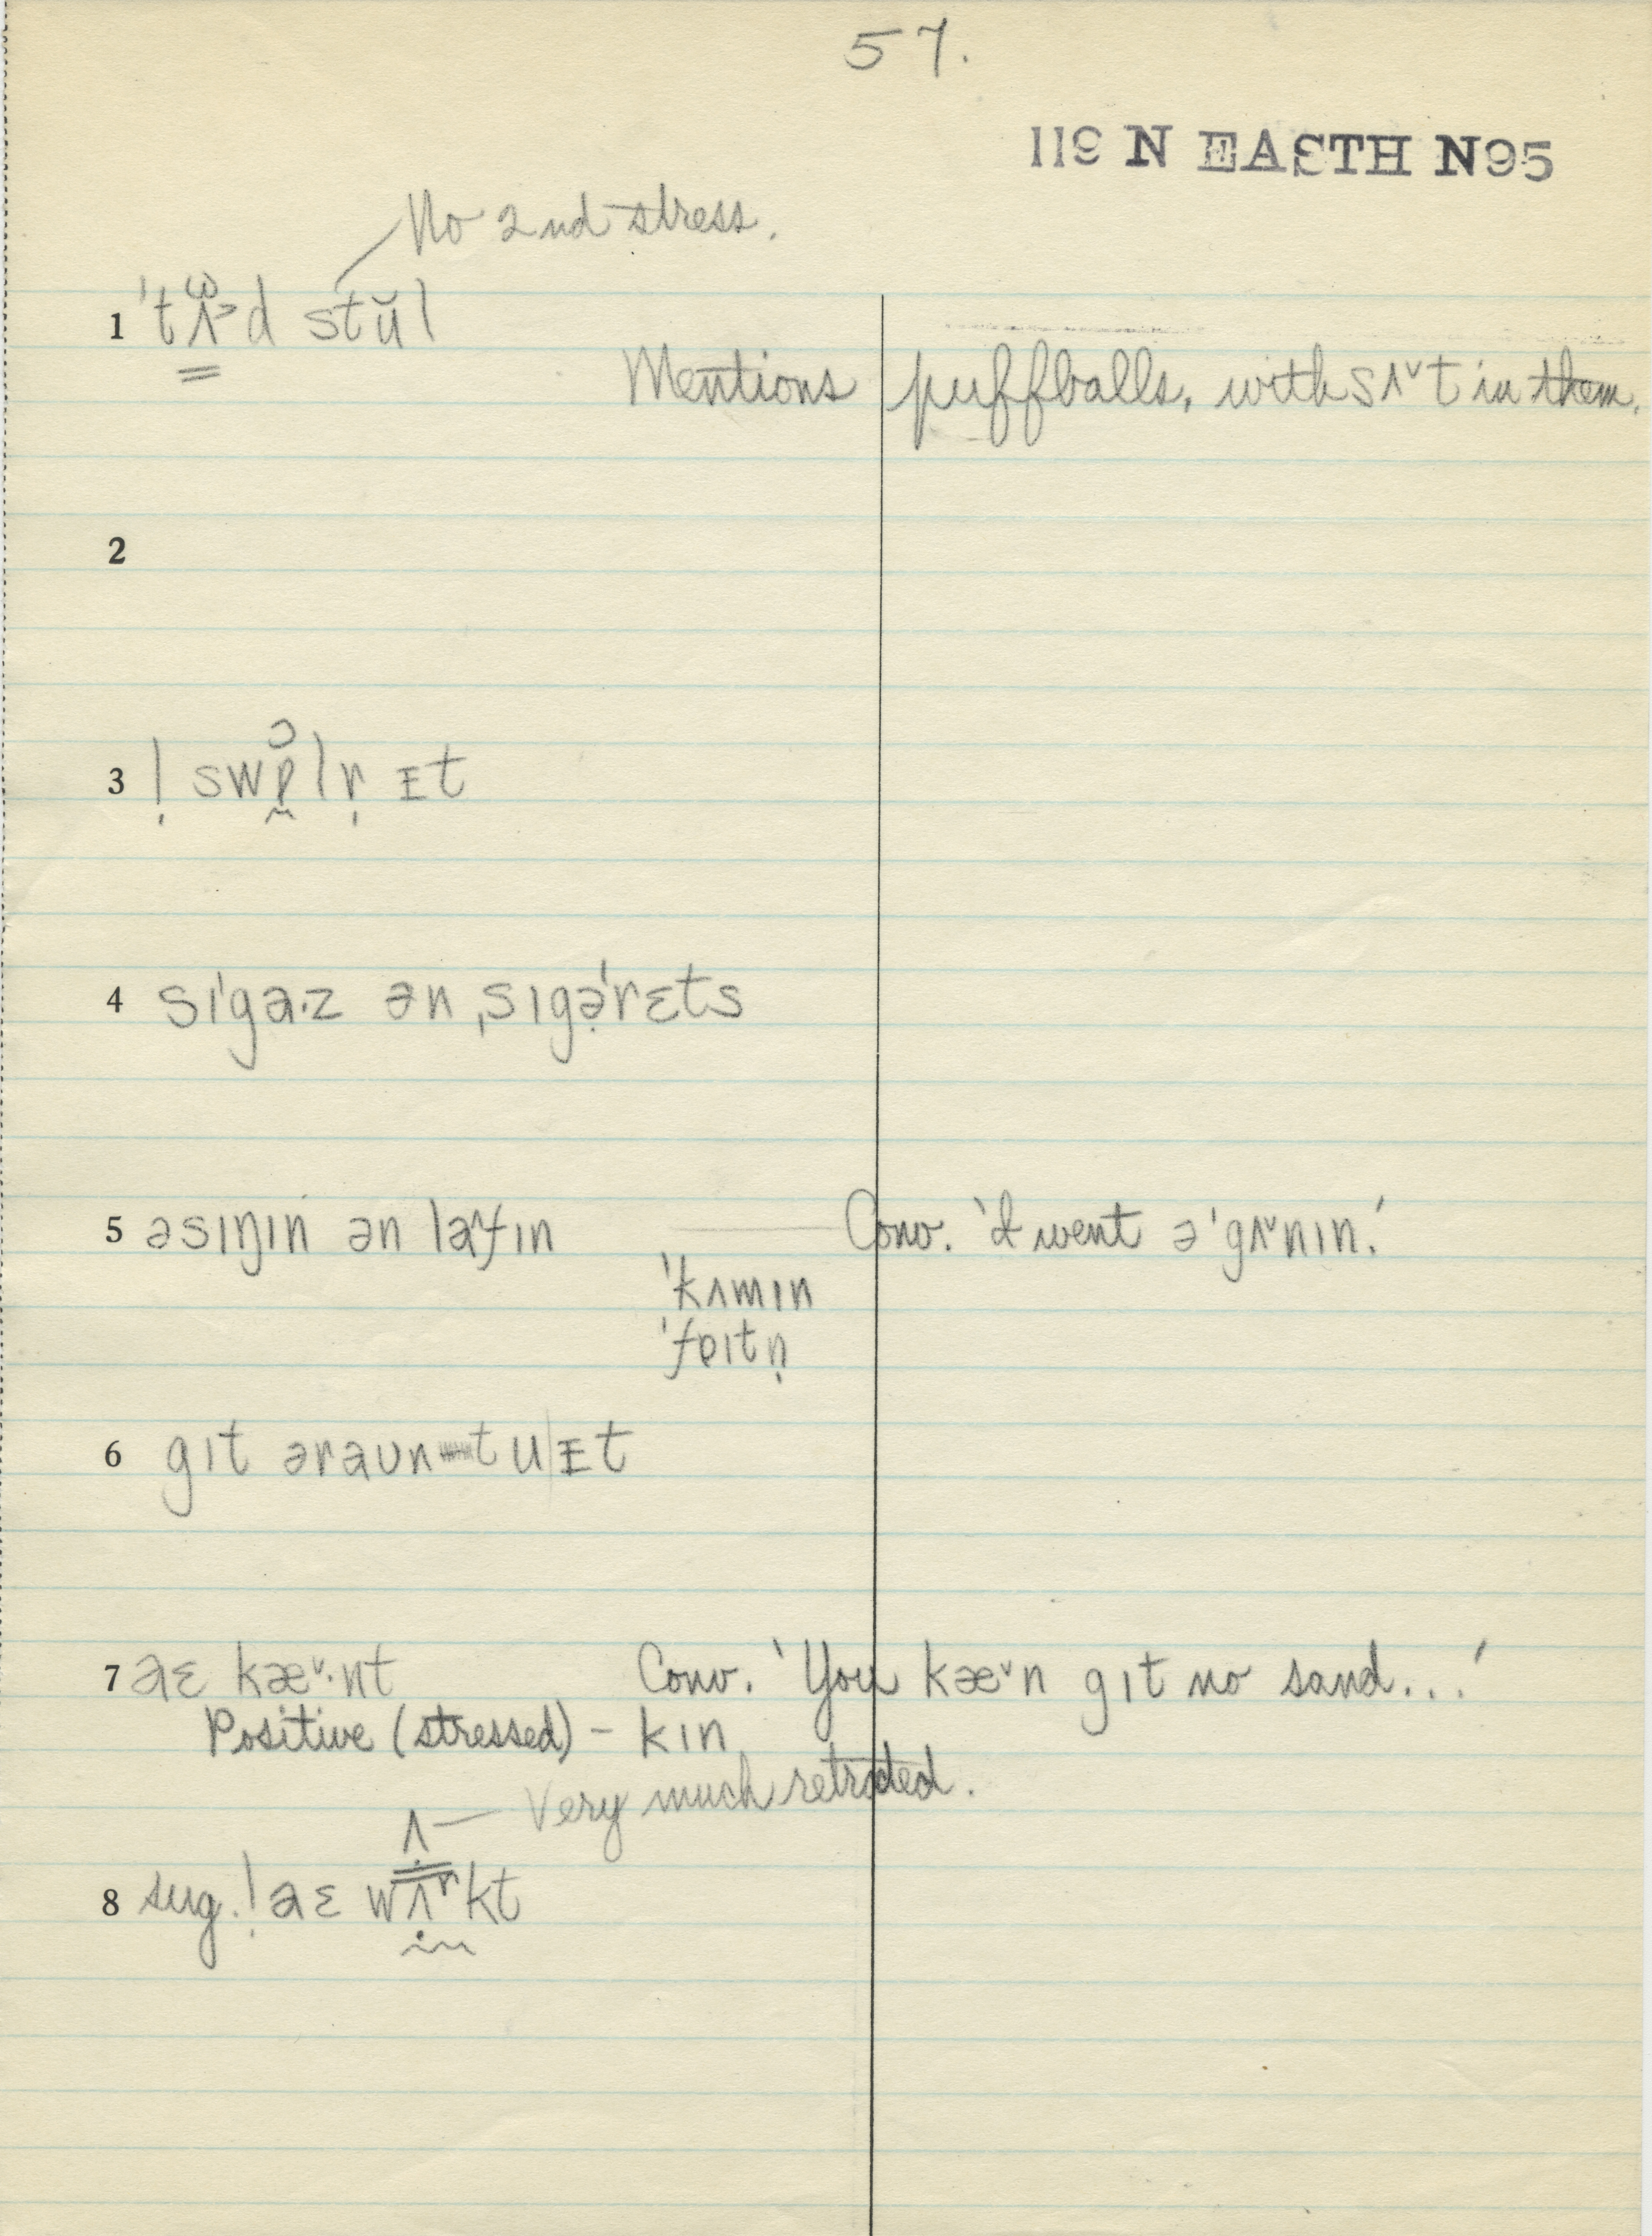 57.
119 N EASTH N95
No 2nd stress.
1 ˈtʌ>d stŭl
Mentions puffballs, with sʌ˅t in them.
2
3 ! swɒlr̩ ɪt
4 sɪˈgɑ·z ən ˌsɪgəˈrɛts
5 əsɪŋɪn ən la^fɪn Conv. 'I went əˈgʌ˅nɪn.'
ˈkʌmɪn
ˈfɒɪtn̩
6 gɪt əraʊn tu|ɪt
7 aɛ kæ˅·nt Conv. 'You kæ˅n gɪt no sand...'
Positive (stressed) – kɪn
ʌ — Very much retracted.
8 sug. ! aɛ wʌʳkt